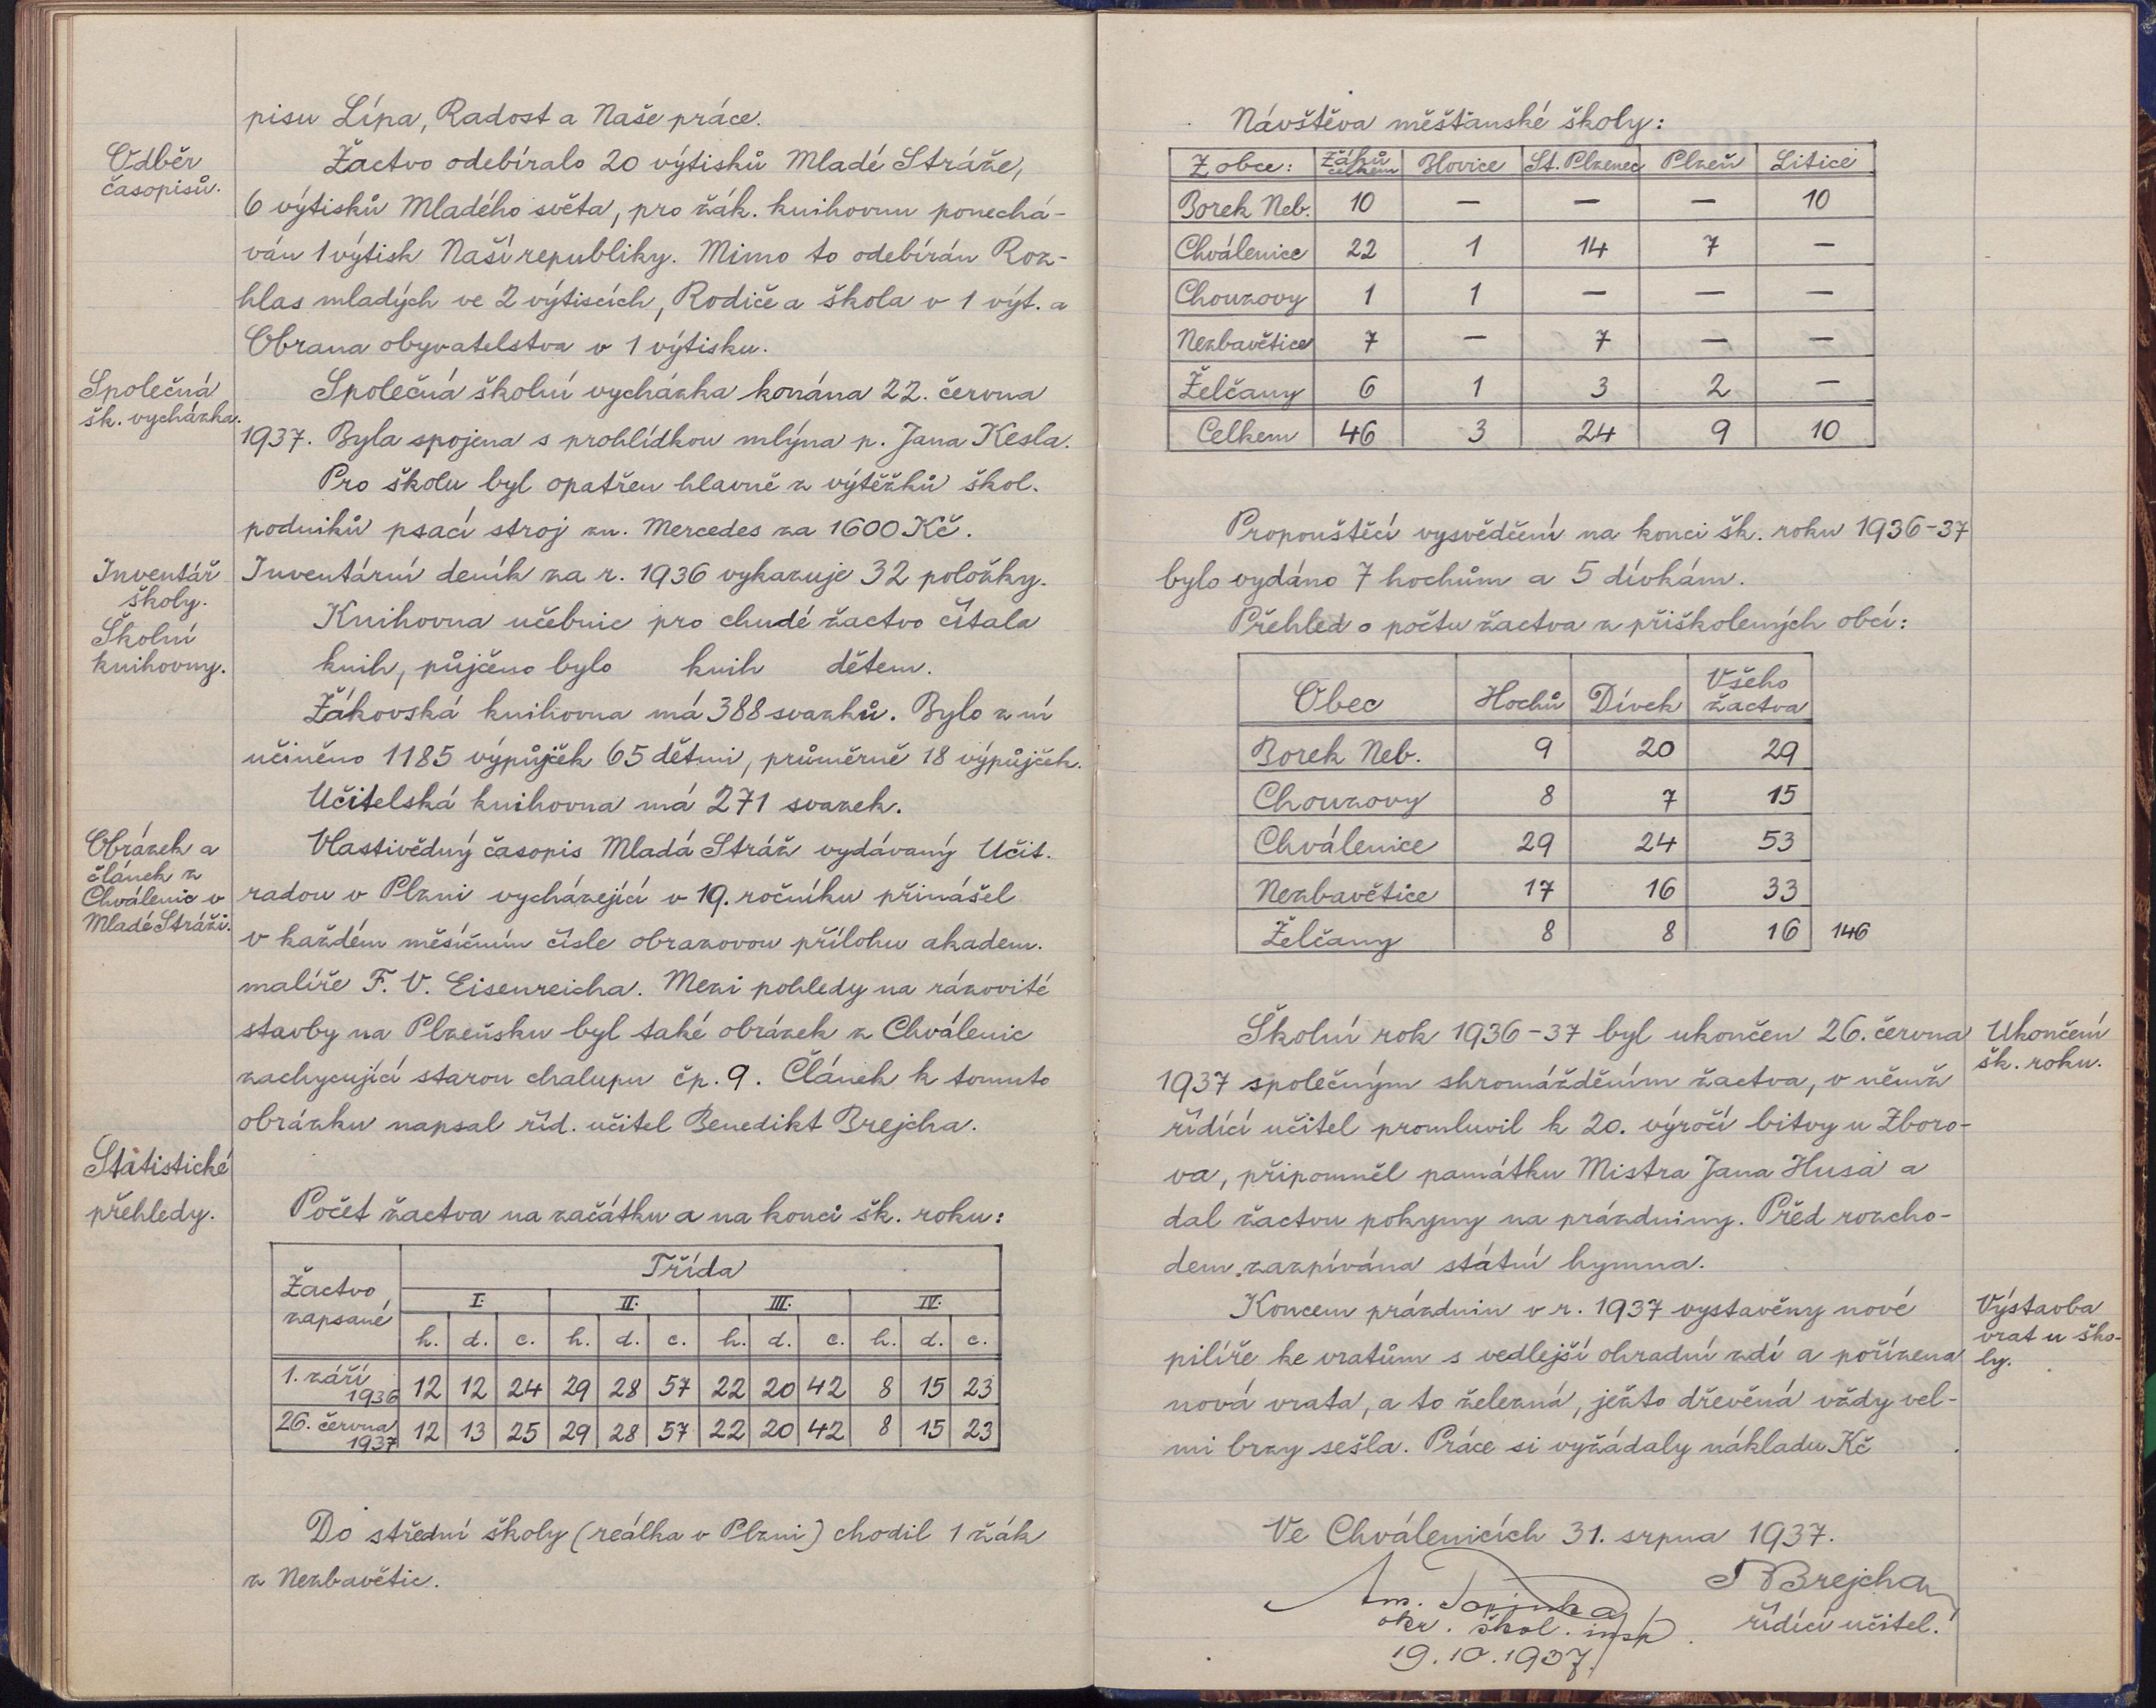 pisu Lípa, Radost a Naše práce.
Odběr
časopisů.
Žactvo odebíralo 20 výtisků Mladé Stráže,
6 výtisků Mladého světa, pro žák. knihovnu ponechá-
ván 1 výtisk Naší republiky. Mimo to odebírán Roz-
hlas mladých ve 2 výtiscích, Rodiče a škola v 1 výt. a
Obrana obyvatelstva v 1 výtisku.
Společná
šk. vycházka.
Společná školní vycházka konána 22. června
1937. Byla spojena s prohlídkou mlýna p. Jana Kesla.
Pro školu byl opatřen hlavně z výtěžků škol.
podniků psací stroj zn. Mercedes za 1600 Kč.
Inventář
školy.
Inventární deník za r. 1936 vykazuje 32 položky.
Školní
knihovny.
Knihovna učebnic pro chudé žactvo čítala
knih, půjčeno bylo knih dětem.
Žákovská knihovna má 388 svazků. Bylo z ní
učiněno 1185 výpůjček 65 dětmi, průměrně 18 výpůjček.
Učitelská knihovna má 271 svazek.
Obrázek a
článek z
Chválenic v
Mladé Stráži.
Vlastivědný časopis Mladá Stráž vydávaný Učit.
radou v Plzni vycházející v 19. ročníku přinášel
v každém měsíčním čísle obrazovou přílohu akadem.
malíře F. V. Eisenreicha. Mezi pohledy na rázovité
stavby na Plzeňsku byl také obrázek z Chválenic
zachycující starou chalupu čp. 9. Článek k tomuto
obrázku napsal říd. učitel Benedikt Brejcha.
Statistické
přehledy.
Počet žactva na začátku a na konci šk. roku:
Žactvo zapsané Třída
I. II. III. IV.
h. d. c. h. d. c. h. d. c. h. d. c.
1. září 1936 12 12 24 29 28 57 22 20 42 8 15 23
26. června 1937 12 13 25 29 28 57 22 20 42 8 15 23
Do střední školy (reálka v Plzni) chodil 1 žák
z Nezbavětic.
Návštěva měšťanské školy:
Z obce: Žáků celkem Blovice St. Plzenec Plzeň Litice
Borek Neb. 10 — — — 10
Chválenice 22 1 14 7 —
Chouzovy 1 1 — — —
Nezbavětice 7 — 7 — —
Želčany 6 1 3 2 —
Celkem 46 3 24 9 10
Propouštěcí vysvědčení na konci šk. roku 1936-37
bylo vydáno 7 hochům a 5 dívkám.
Přehled o počtu žactva z přiškolených obcí:
Obec Hochů Dívek Všeho žactva
Borek Neb. 9 20 29
Chouzovy 8 7 15
Chválenice 29 24 53
Nezbavětice 17 16 33
Želčany 8 8 16 146
Školní rok 1936-37 byl ukončen 26. června
Ukončení
šk. roku.
1937 společným shromážděním žactva, v němž
řídící učitel promluvil k 20. výročí bitvy u Zboro-
va, připomněl památku Mistra Jana Husa a
dal žactvu pokyny na prázdniny. Před rozcho-
dem zazpívána státní hymna.
Výstavba
vrat u ško-
ly.
Koncem prázdnin v r. 1937 vystavěny nové
pilíře ke vratům s vedlejší ohradní zdí a pořízena
nová vrata, a to železná, ježto dřevěná vždy vel-
mi brzy sešla. Práce si vyžádaly nákladu Kč .
Ve Chválenicích 31. srpna 1937.
Brejcha
řídící učitel.
okr. škol. insp.
19.10.1937